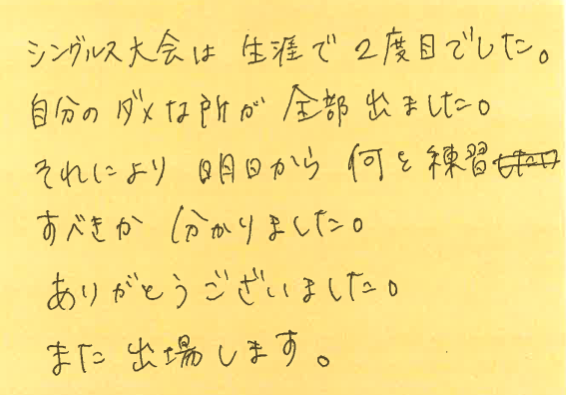 シングルス大会は 生涯で 2度目でした。
自分のダメな所が 全部出ました。
それにより 明日から 何を練習
すべきか 分かりました。
ありがとうございました。
また出場します。